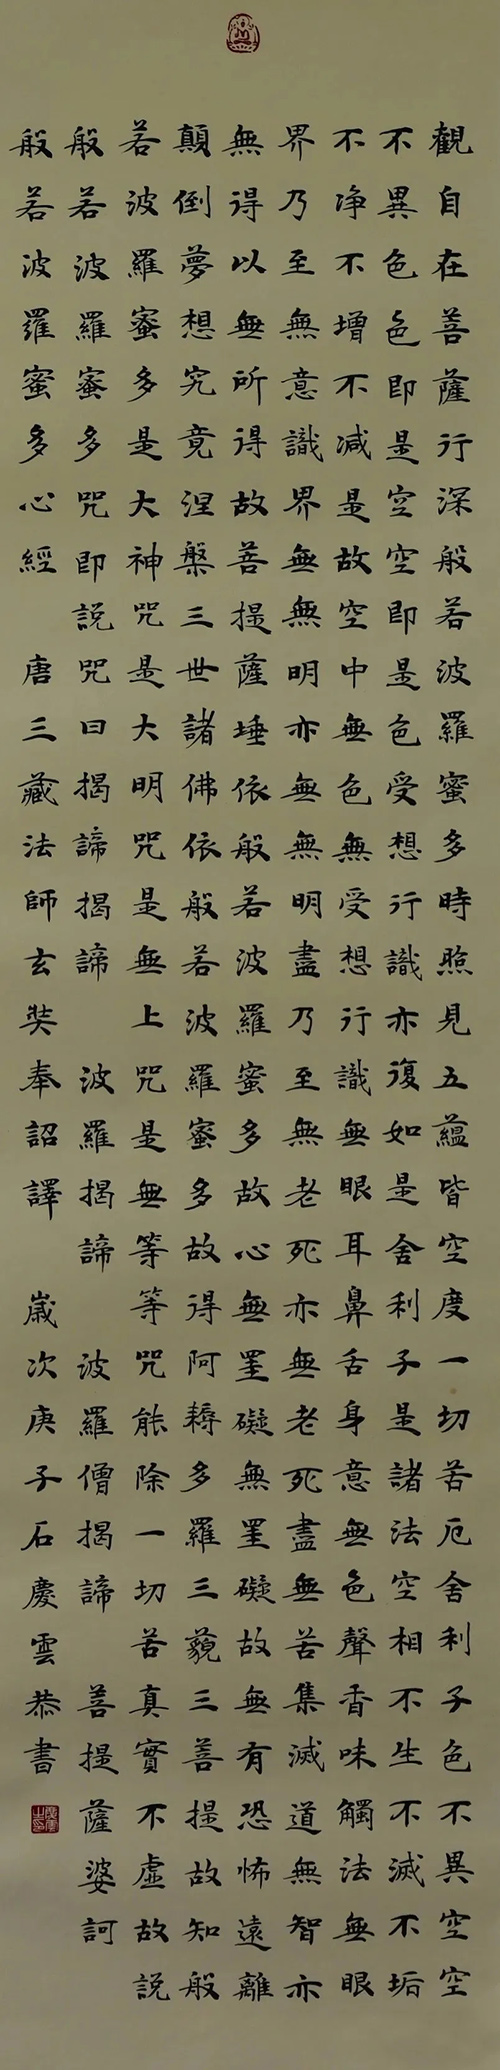 觀自在菩薩行深般若波羅蜜多時照見五蘊皆空度一切苦厄舍利子色不異空空
不異色色即是空空即是色受想行識亦復如是舍利子是諸法空相不生不滅不垢
不净不增不减是故空中無色無受想行識無眼耳鼻舌身意無色聲香味觸法無眼
界乃至無意識界無無明亦無無明盡乃至無老死亦無老死盡無苦集滅道無智亦
無得以無所得故菩提薩埵依般若波羅蜜多故心無罣礙無罣礙故無有恐怖遠離
顛倒夢想究竟涅槃三世諸佛依般若波羅蜜多故得阿耨多羅三藐三菩提故知般
若波羅蜜多是大神咒是大明咒是無上咒是無等等咒能除一切苦真實不虛故説
般若波羅蜜多咒即説咒曰揭諦揭諦 波羅揭諦 波羅僧揭諦 菩提薩婆訶
般若波羅蜜多心經 唐三藏法師玄奘奉詔譯 歲次庚子石慶雲恭書